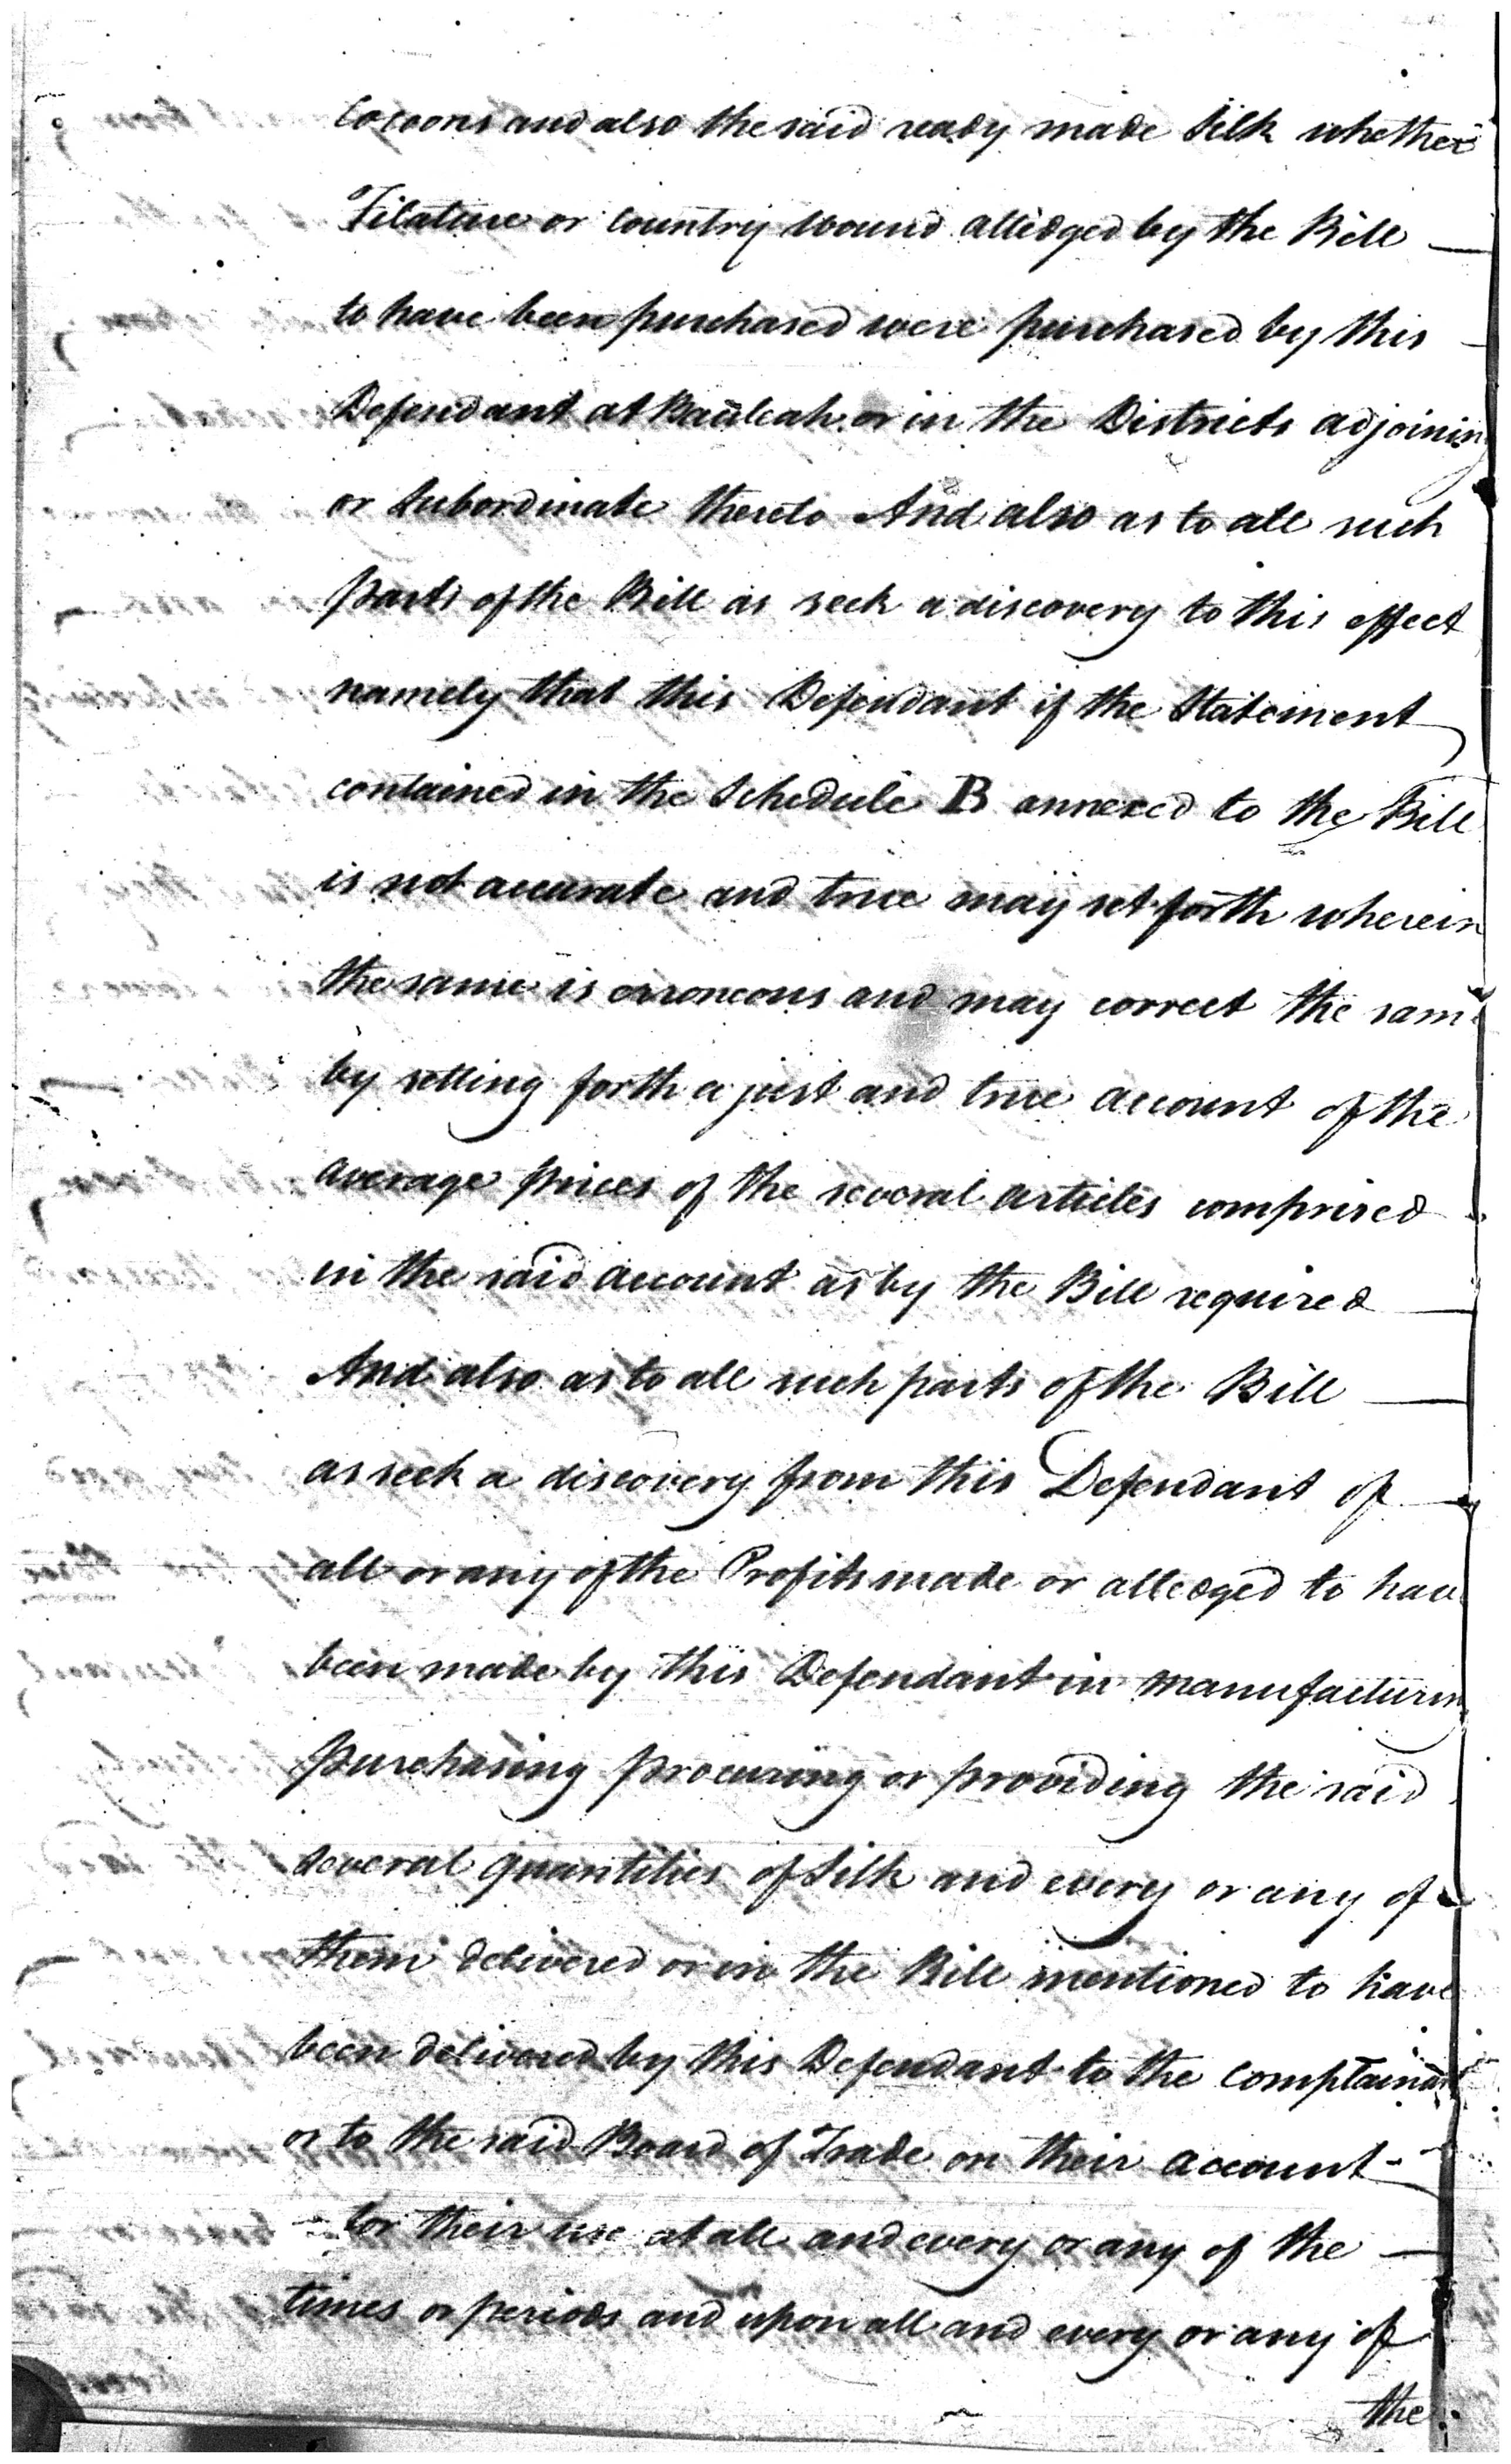 Cocoons and also the said ready made Silk whether
Filature or Country Wound alledged by the Bill
to have been purchased were purchased by this
Defendant at Bauleah or in the Districts adjoining
or Subordinate thereto And also as to all such
parts of the Bill as seek a discovery to this effect
namely that this Defendant if the Statement
contained in the Schedule B annexed to the Bill
is not accurate and true may set forth wherein
the same is erroneous and may correct the same
by setting forth a just and true account of the
average prices of the several articles comprised
in the said account as by the Bill required
And also as to all such parts of the Bill
as seek a discovery from this Defendant of
all or any of the Profits made or alledged to have
been made by this Defendant in manufacturing
purchasing procuring or providing the said
several quantities of Silk and every or any of
them delivered or in the Bill mentioned to have
been delivered by this Defendant to the Complainant
or to the said Board of Trade on their account
or their use at all and every or any of the
times or periods and upon all and every or any of
the